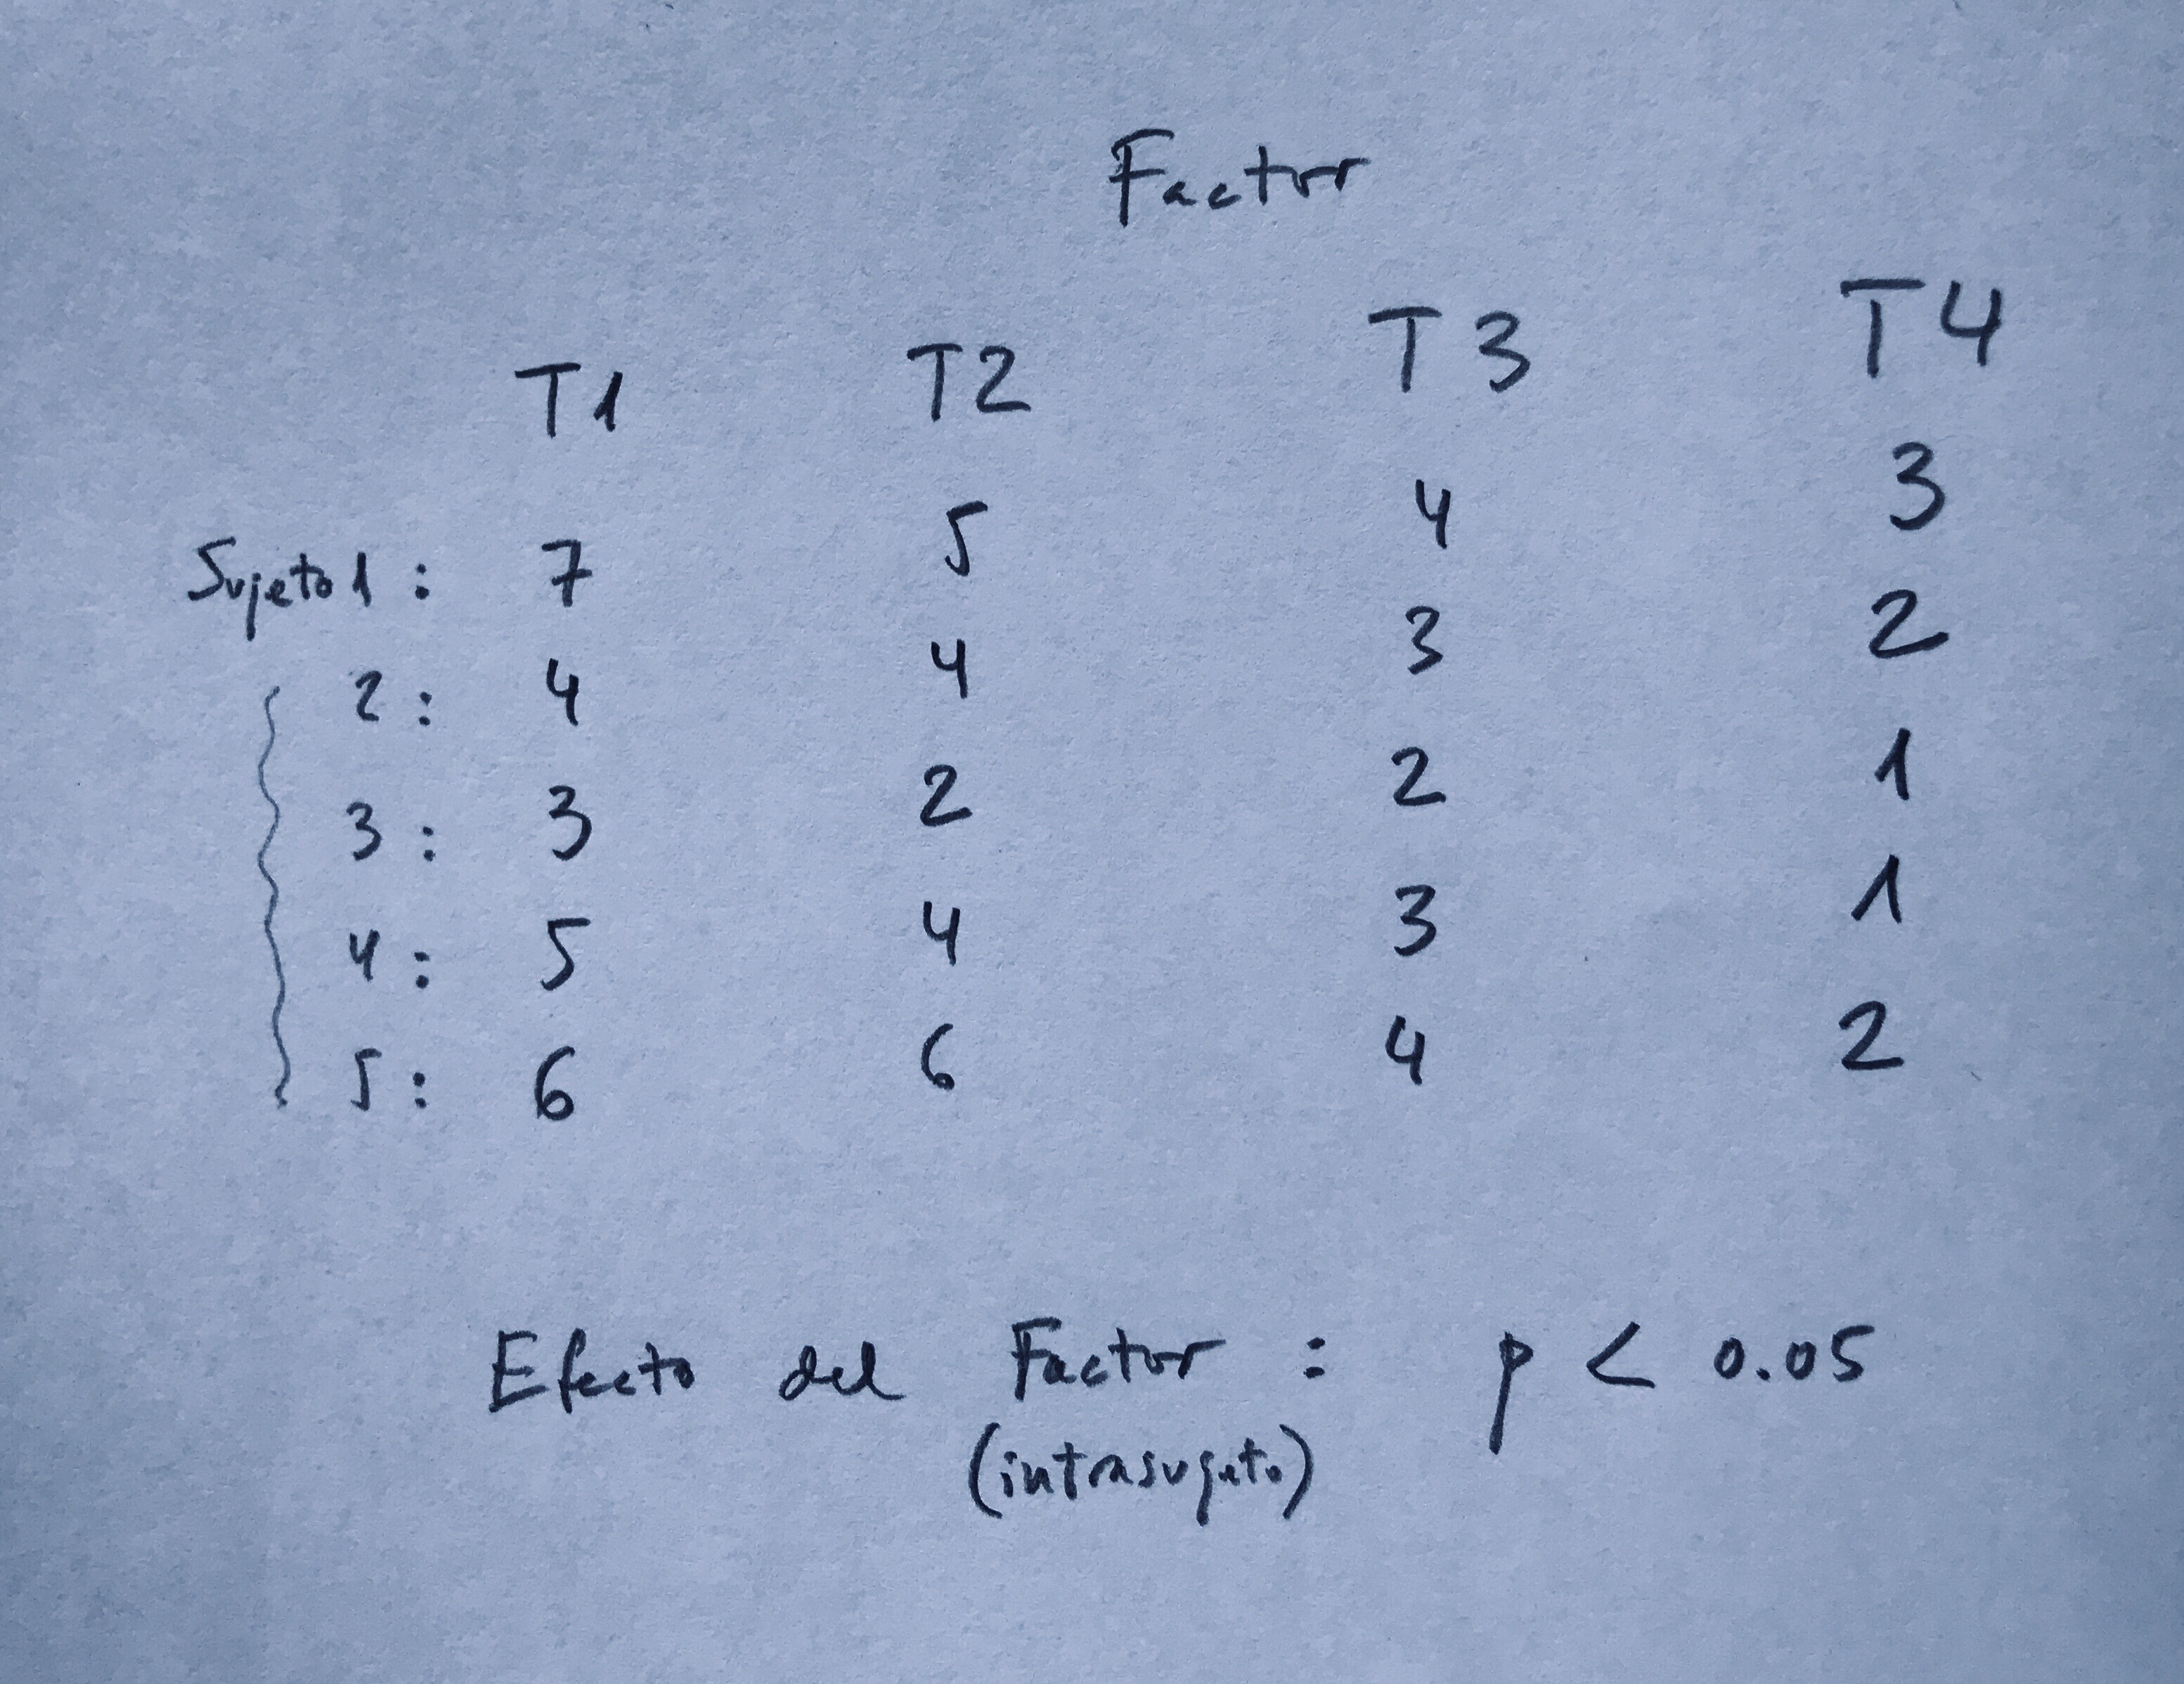 Factor
T1 T2 T3 T4
Sujeto 1 : 7 5 4 3
2 : 4 4 3 2
3 : 3 2 2 1
4 : 5 4 3 1
5 : 6 6 4 2
Efecto del Factor : p < 0.05
(intrasujeto)